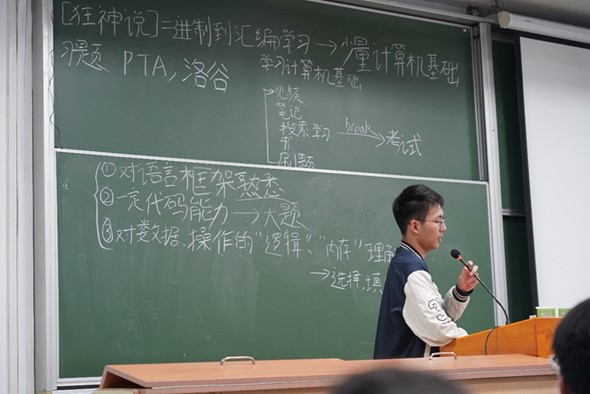 [狂神说]二进制到汇编学习→少量计算机基础
习题 PTA,洛谷
学习计算机基础
视频
笔记
搜索学习 break→ 考试
书
刷题
①对语言框架熟悉
②一定代码能力→大题
③对数据、操作的“逻辑”、“内存”理解
→选择、填